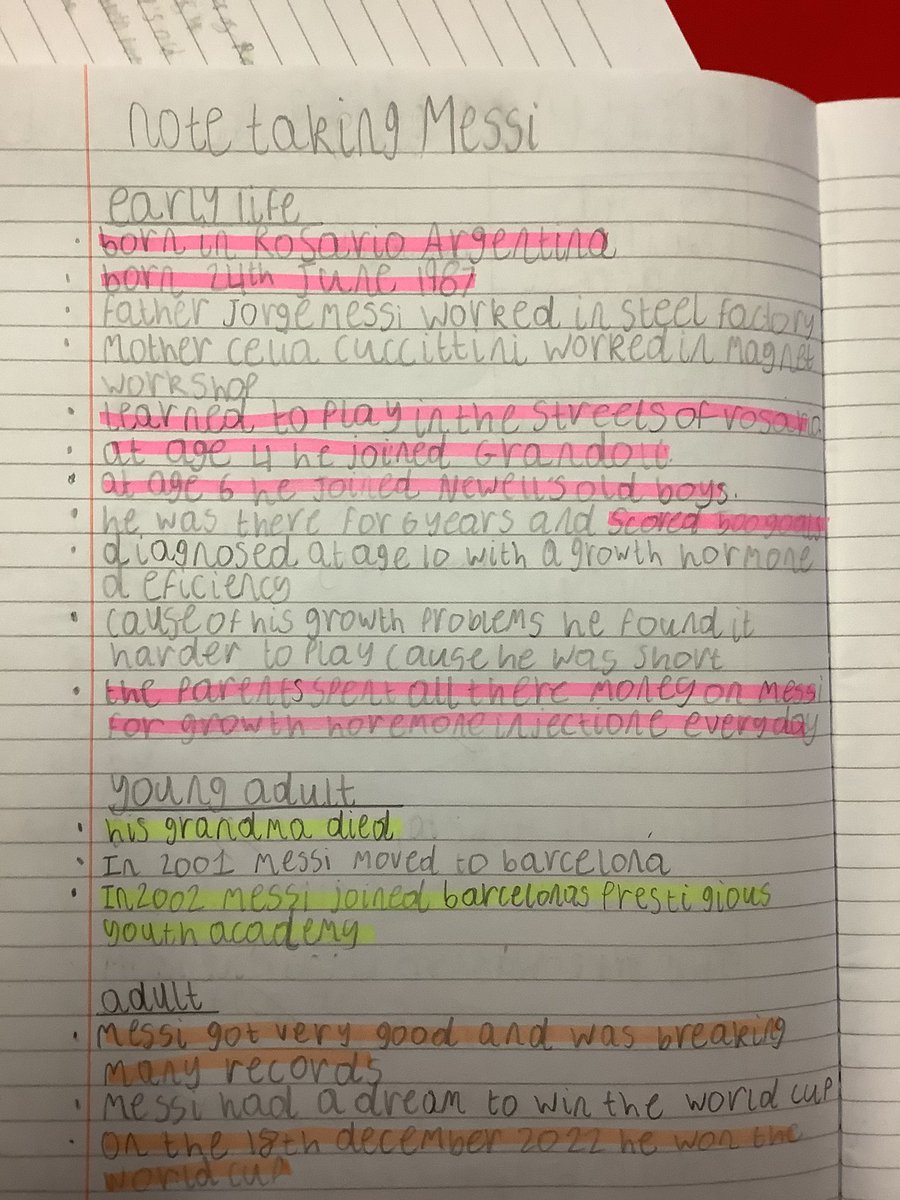 note taking Messi
early life
born in Rosario Argentina
born 24th June 1987
father Jorge messi worked in steel factory
Mother celia cuccittini worked in magnet
workshop
learned to play in the streets of rosario
at age 4 he joined Grandoli
at age 6 he joined Newell's old boys.
he was there for 6 years and scored 500 goals
diagnosed at age 10 with a growth hormone
deficiency
cause of his growth problems he found it
harder to play cause he was short
the parents spent all there money on messi
for growth horemone injectione everyday
young adult
his grandma died
In 2001 messi moved to barcelona
In 2002 messi joined barcelonas prestigious
youth academy
adult
messi got very good and was breaking
many records
messi had a dream to win the world cup
on the 18th december 2022 he won the
world cup